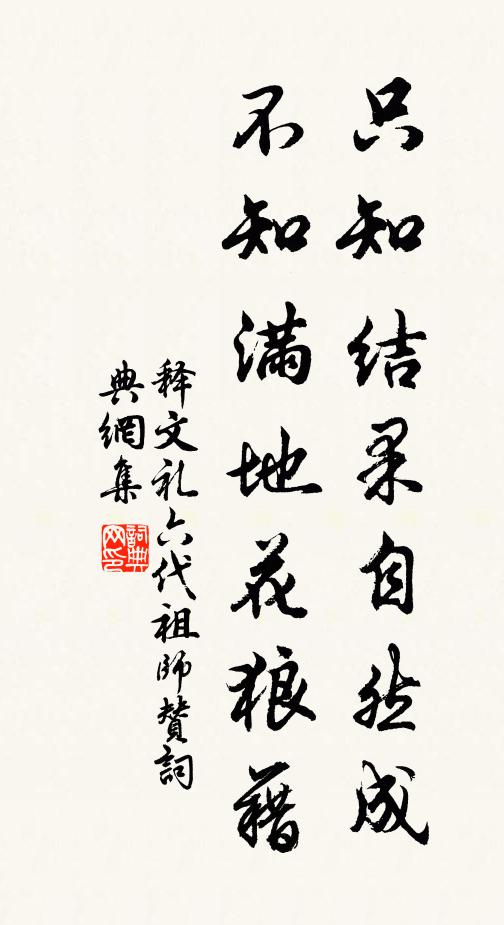 只知结果自然成
不知满地花狼藉
释文礼六代祖師赞詞
典網集
詞典网印